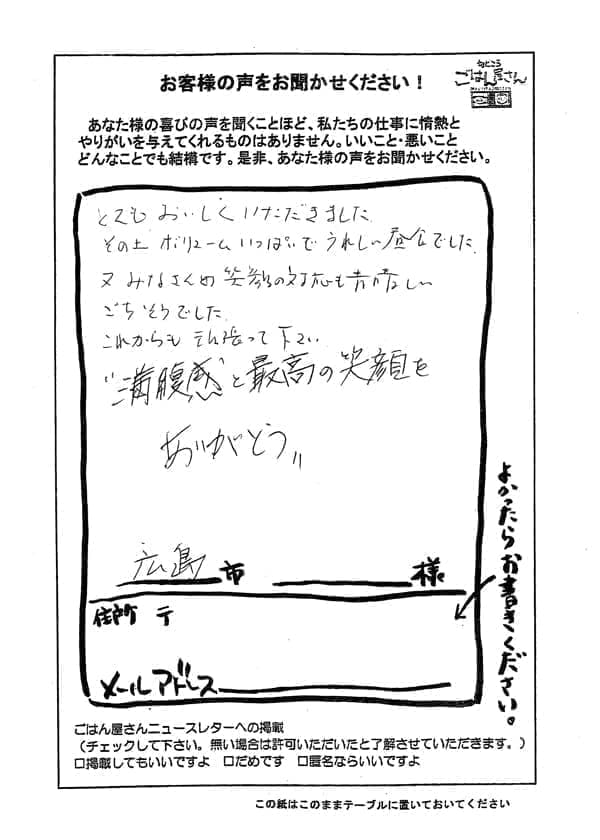 旬どころ
ごはん屋さん
お客様の声をお聞かせください！
あなた様の喜びの声を聞くことほど、私たちの仕事に情熱と
やりがいを与えてくれるものはありません。いいこと・悪いこと
どんなことでも結構です。是非、あなた様の声をお聞かせください。
とてもおいしくいただきました
その上ボリュームいっぱいでうれしい昼食でした
又みなさんの笑顔の対応も素晴しい
ごちそうでした
これからも頑張って下さい
"満腹感"と最高の笑顔を
ありがとう〃
広島市 様
住所 〒
メールアドレス
よかったらお書きください。
ごはん屋さんニュースレターへの掲載
（チェックして下さい。無い場合は許可いただいたと了解させていただきます。）
□掲載してもいいですよ □だめです □匿名ならいいですよ
この紙はこのままテーブルに置いておいてください